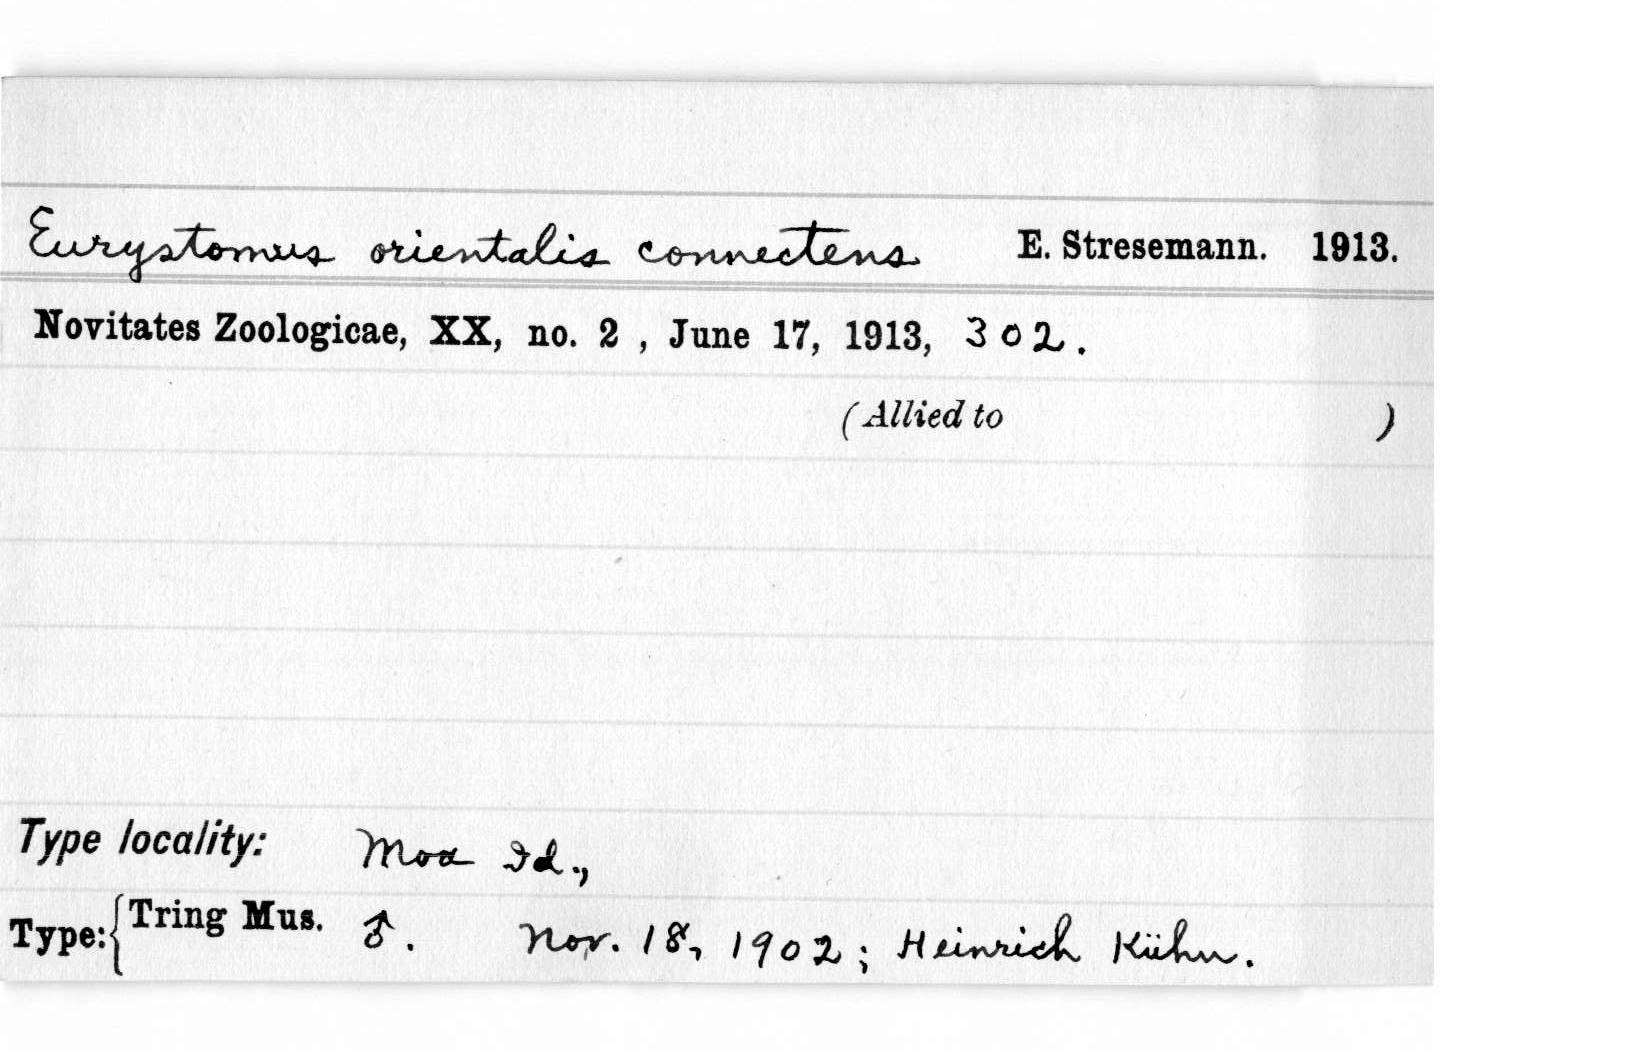 Eurystomus orientalis connectens E. Stresemann. 1913.
Novitates Zoologicae, XX, no. 2 , June 17, 1913, 302.
(Allied to )
Type locality: Moa Id.,
Type: { Tring Mus. ♂. Nov. 18, 1902; Heinrich Kühn.